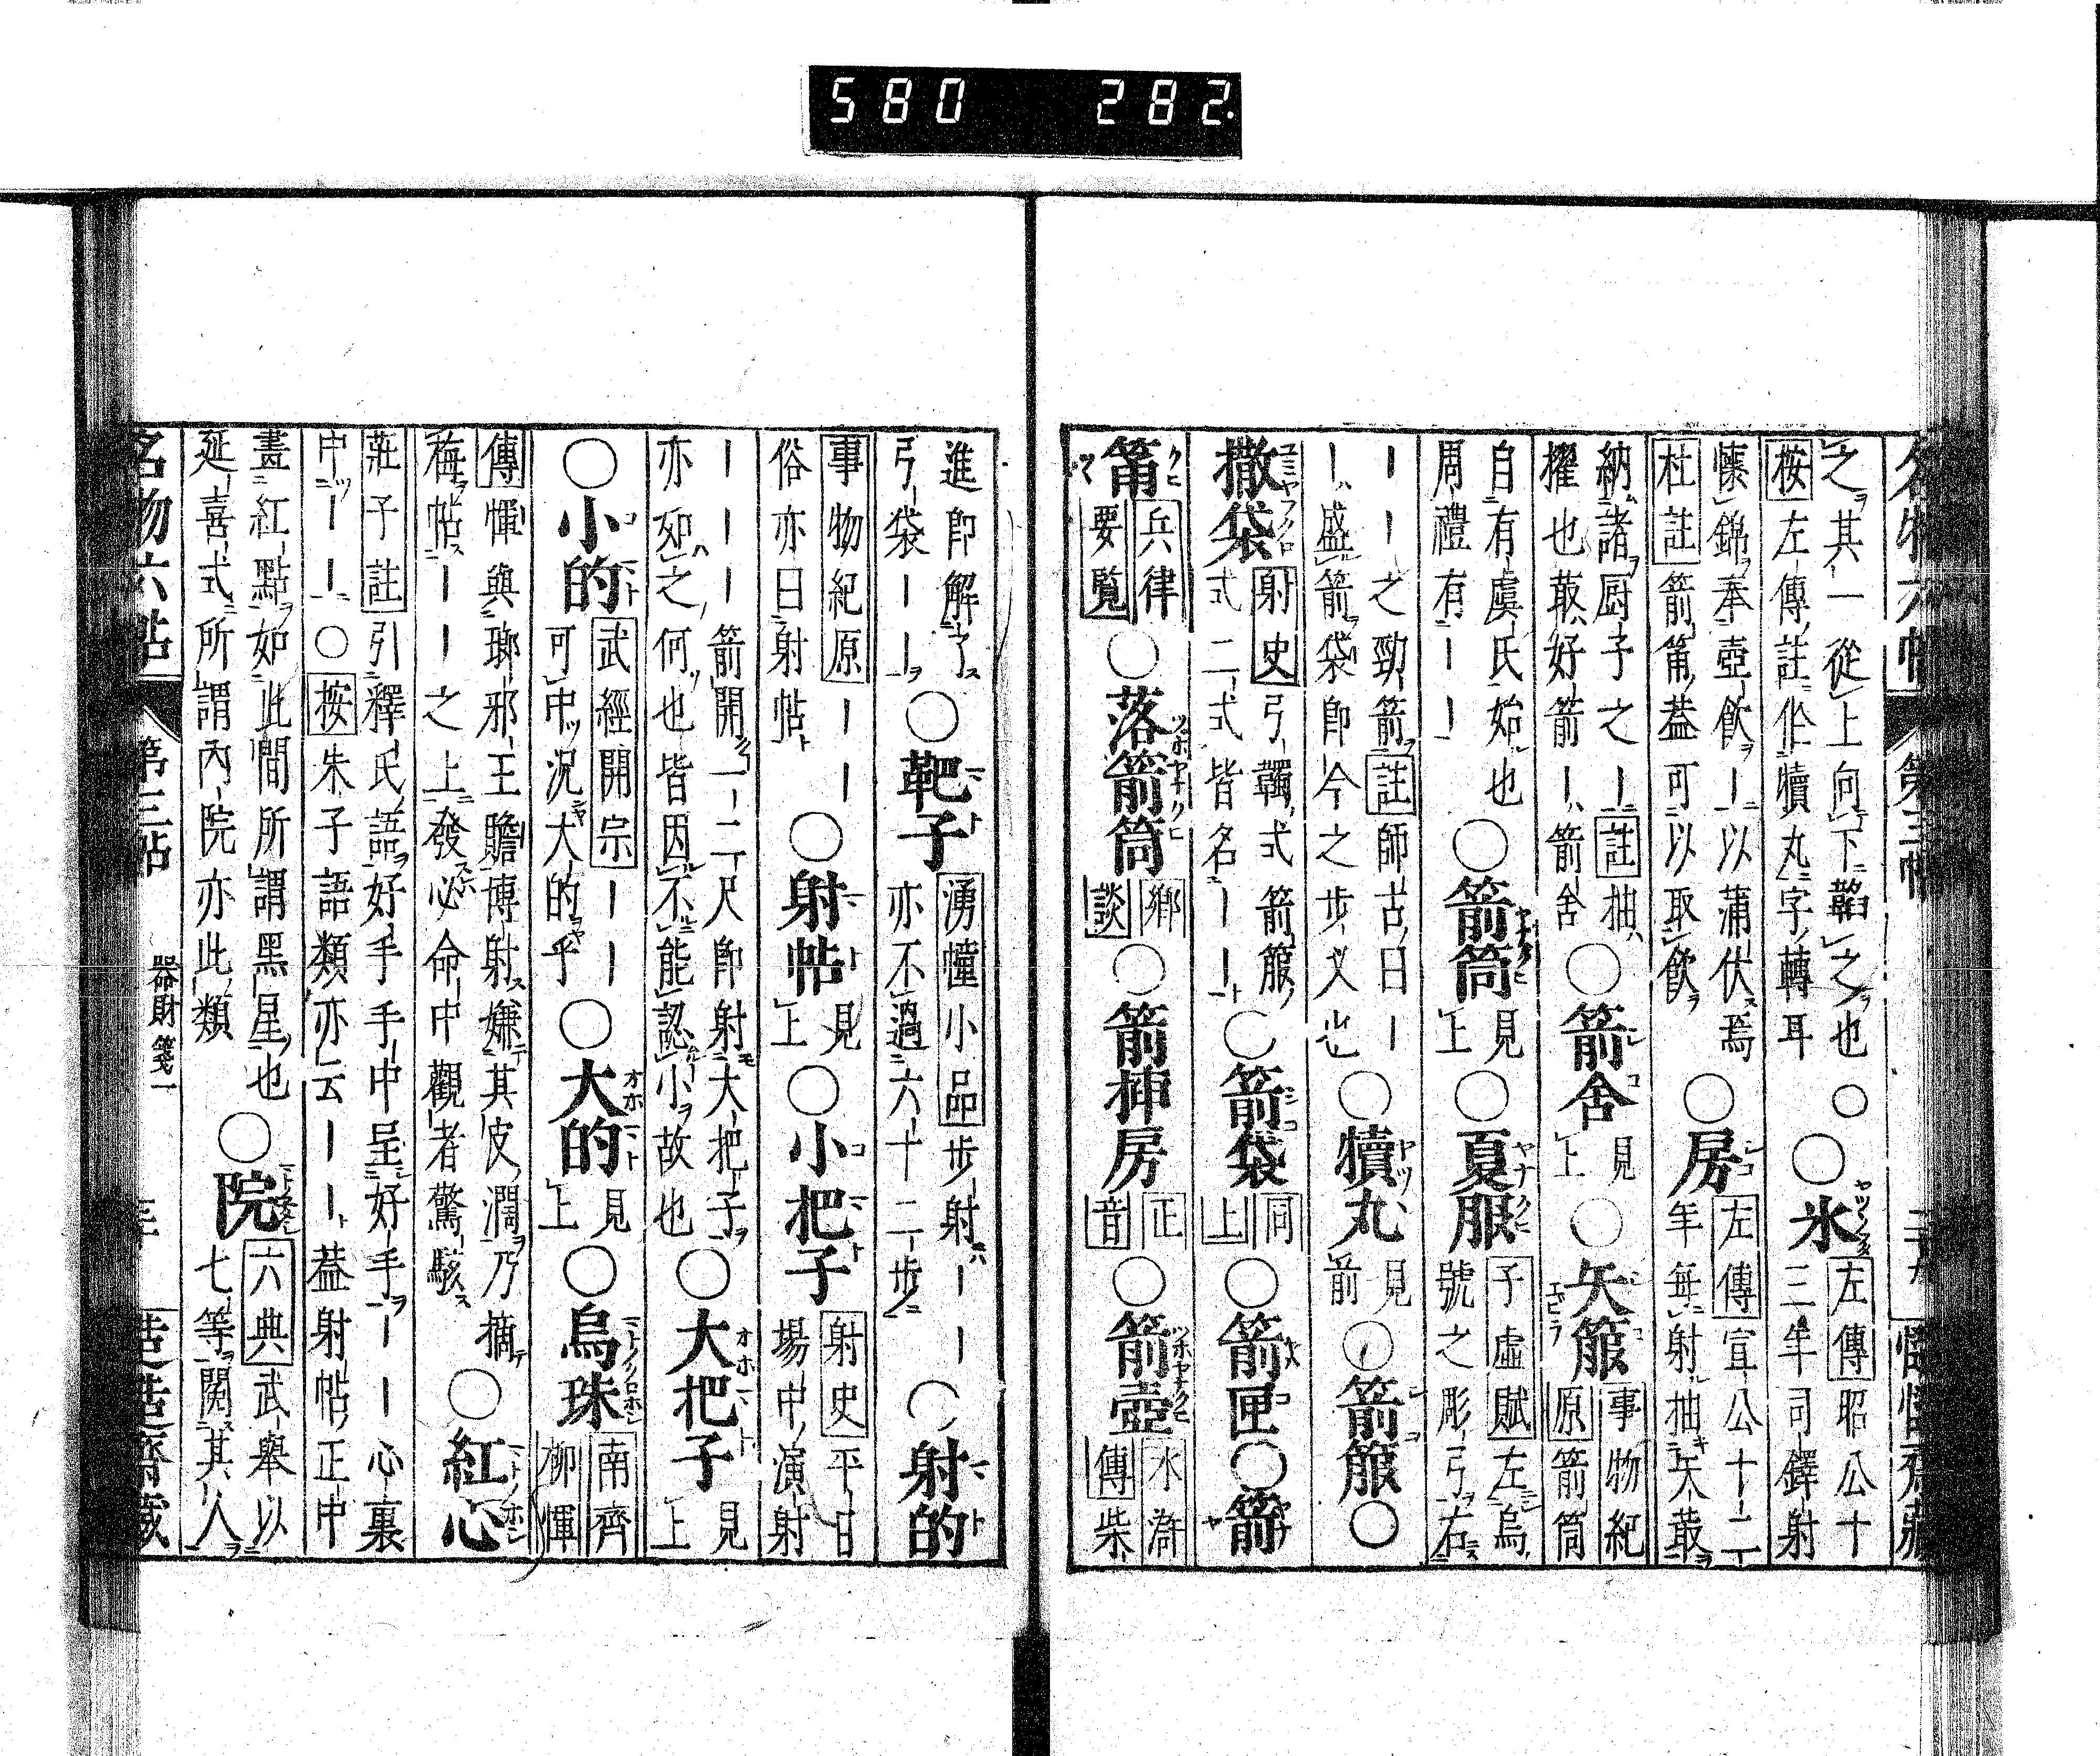 580 282.
名物六帖 第三帖
之其一從上向下韜之也○ ○氷 左傳昭公十
按左傳註作犢丸字轉耳 三年司鐸射
懷錦奉壺飲一以蒲伏焉 ○房 左傳宣公十二
杜註箭筩蓋可以取飲 年每射抽矢菆
納諸厨子之一註抽 ○箭舍 見上 ○矢箙 事物紀
擢也菆好箭一箭舍 原箭筒
自有虞氏始也 ○箭筒 見上 ○夏服 子虛賦左烏
周禮有一一 號之彫弓右
一一之勁箭註師古曰一
一盛箭袋即今之步义也 ○犢丸 見前 ○箭箙 ○
撒袋 射史弓韣式箭箙
式二式皆名一一 ○箭袋 同上 ○箭匣 ○箭
筩 兵律要覧 ○落箭筒 鄉談 ○箭揷房 正音 ○箭壺 水滸傳柴
進即解了
弓袋一一 ○靶子 湧幢小品步射一一
亦不過六十二步 ○射的
事物紀原一一
俗亦曰射帖 ○射帖 見上 ○小把子 射史平日
場中演射
一一一箭開一二尺即射大把子
亦如之何也皆因不能認小故也 ○大把子 見上
○小的 武經開宗一一
可中況大的乎 ○大的 見上 ○烏珠 南齊柳惲
傳惲與瑯邪王瞻博射嫌其皮濶乃摘
梅帖一一之上發必命中觀者驚駭 ○紅心
莊子註引釋氏語好手手中呈好手一一心裏
中一一○按朱子語類亦云一一蓋射帖正中
畫紅點如此間所謂黑星也 ○院 六典武舉以
延喜式所謂內院亦此類 七等閱其人
名物六帖 第三帖 器財箋一